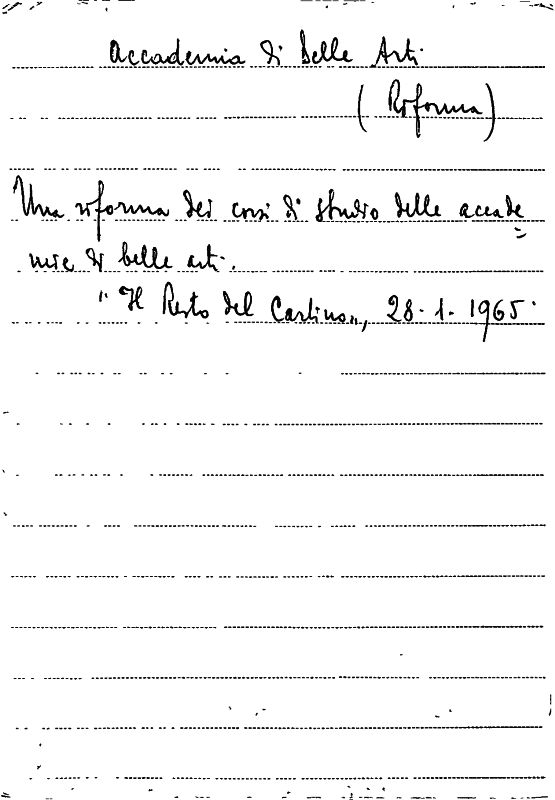 Accademia di Belle Arti
(Riforma)
Una riforma dei corsi di studio delle accade=
mie di belle arti.
"Il Resto del Carlino", 28.1.1965.